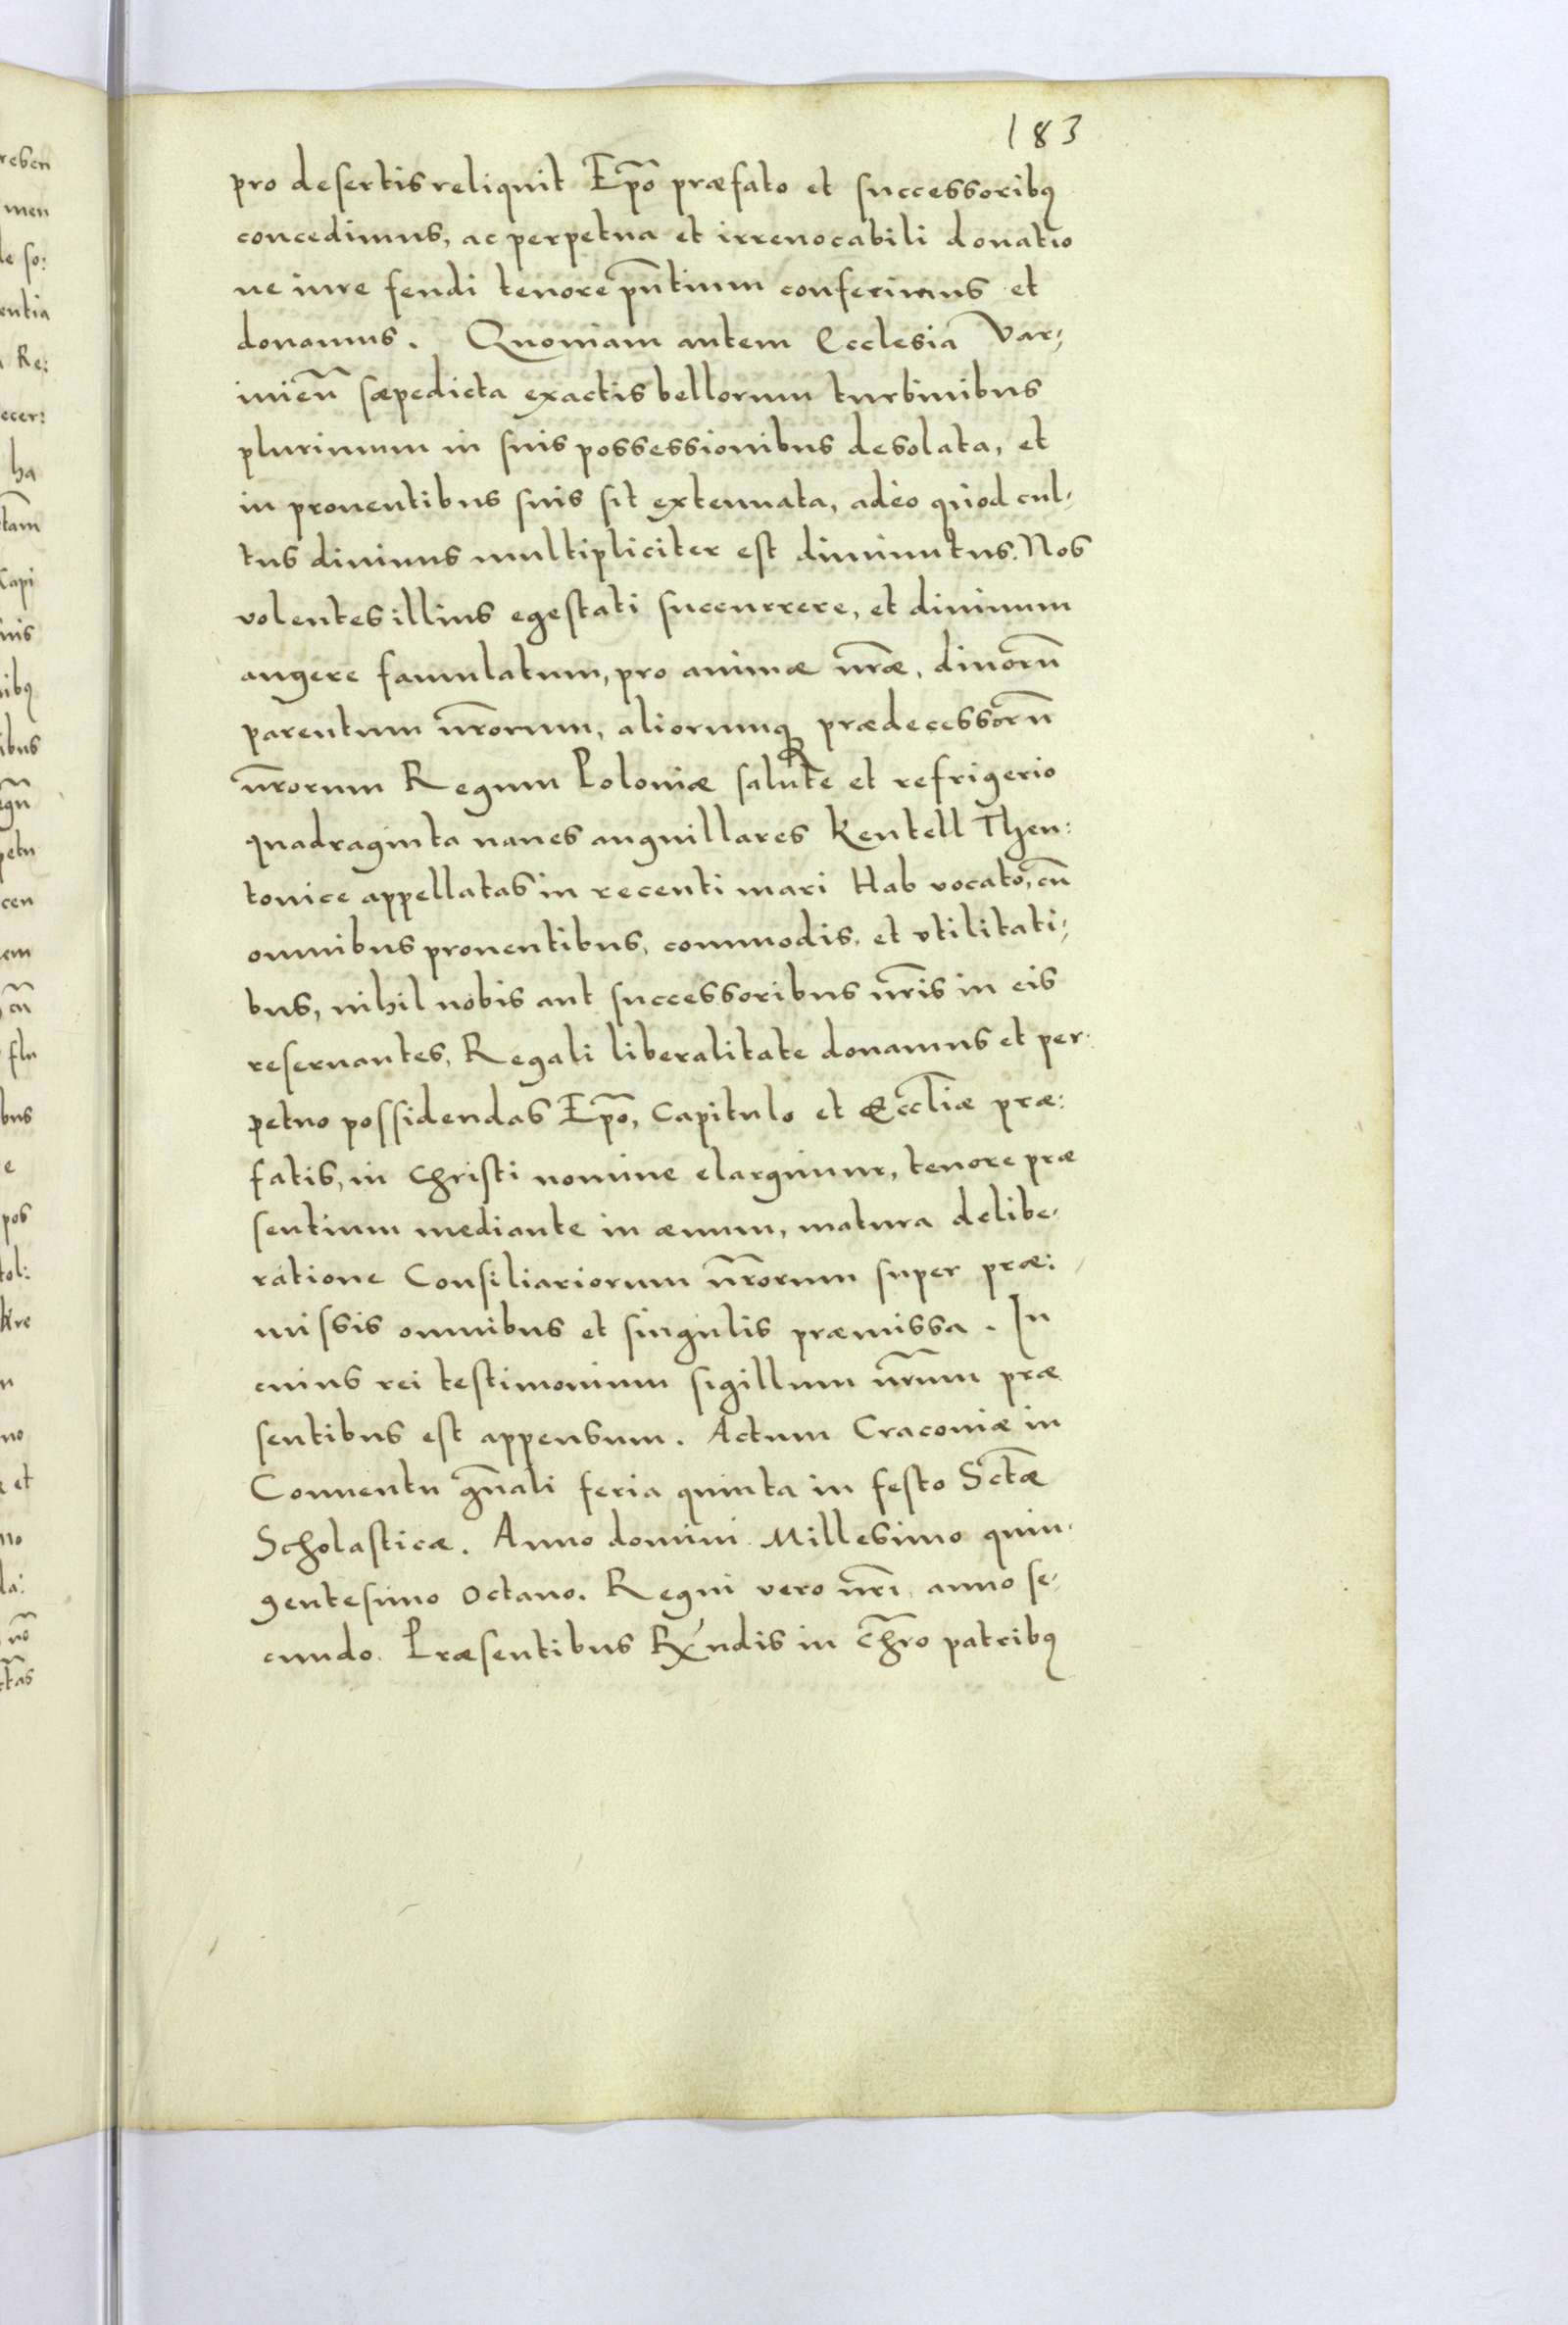 183
pro desertis reliquit Ep̃o præfato et successoribq
concedimus, ac perpetua et irreuocabili donatio
ne iure feudi tenore pñtium conferimus et
donamus. Quoniam autem Ecclesia Var-
mieñ sæpedicta exactis bellorum turbinibus
plurimum in suis possessionibus desolata, et
in prouentibus suis sit extenuata, adeo quod cul-
tus diuinus multipliciter est diminutus. Nos
volentes illius egestati succurrere, et diuinum
augere famulatum, pro animæ nr̃æ, diuorũ
parentum nr̃orum, aliorumq prædecessorũ
nr̃orum Regum Poloniæ salute et refrigerio
quadraginta naues anguillares Keutell Theu:
tonice appellatas in recenti mari Hab vocato, cũ
omnibus prouentibus, commodis, et vtilitati-
bus, nihil nobis aut successoribus nr̃is in eis
reseruantes, Regali liberalitate donamus et per-
petuo possidendas Ep̃o, Capitulo et Eccl̃iæ præ:
fatis, in Christi nomine elargimur, tenore præ
sentium mediante in æuum, matura delibe-
ratione Consiliariorum nr̃orum super præ:
missis omnibus et singulis præmissa. In
cuius rei testimonium sigillum nr̃um præ
sentibus est appensum. Actum Cracouiæ in
Conuentu gñali feria quinta in festo Sctæ̃
Scholasticæ. Anno domini Millesimo quin-
gentesimo Octauo. Regni vero nr̃i anno se-
cundo. Præsentibus Rx̃ndis in Chr̃o patribq